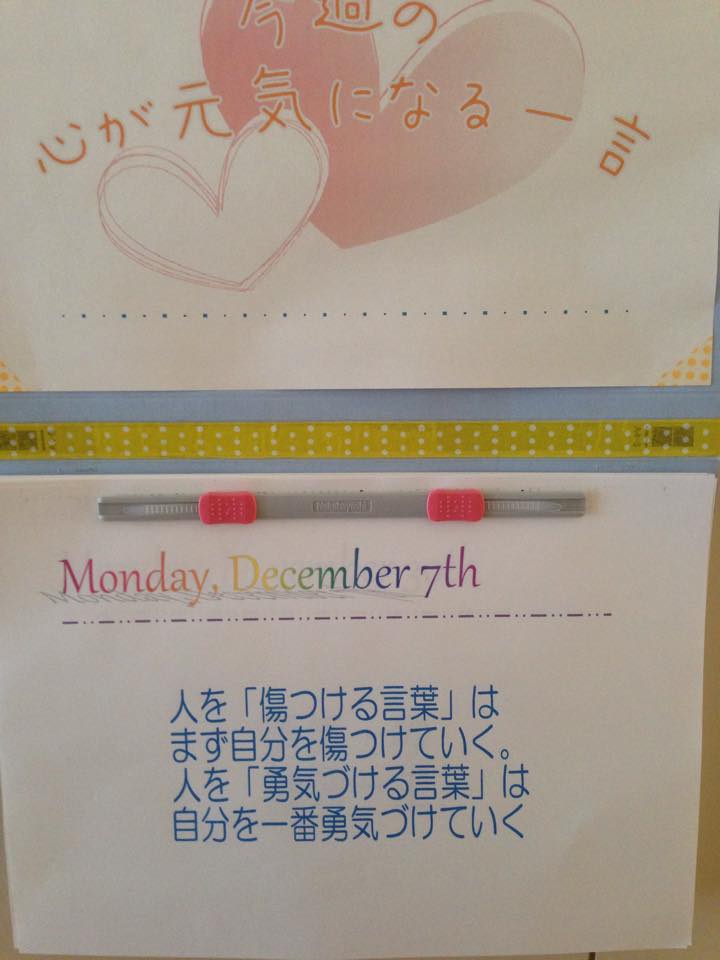 今週の
心が元気になる一言
Monday, December 7th
人を「傷つける言葉」は
まず自分を傷つけていく。
人を「勇気づける言葉」は
自分を一番勇気づけていく